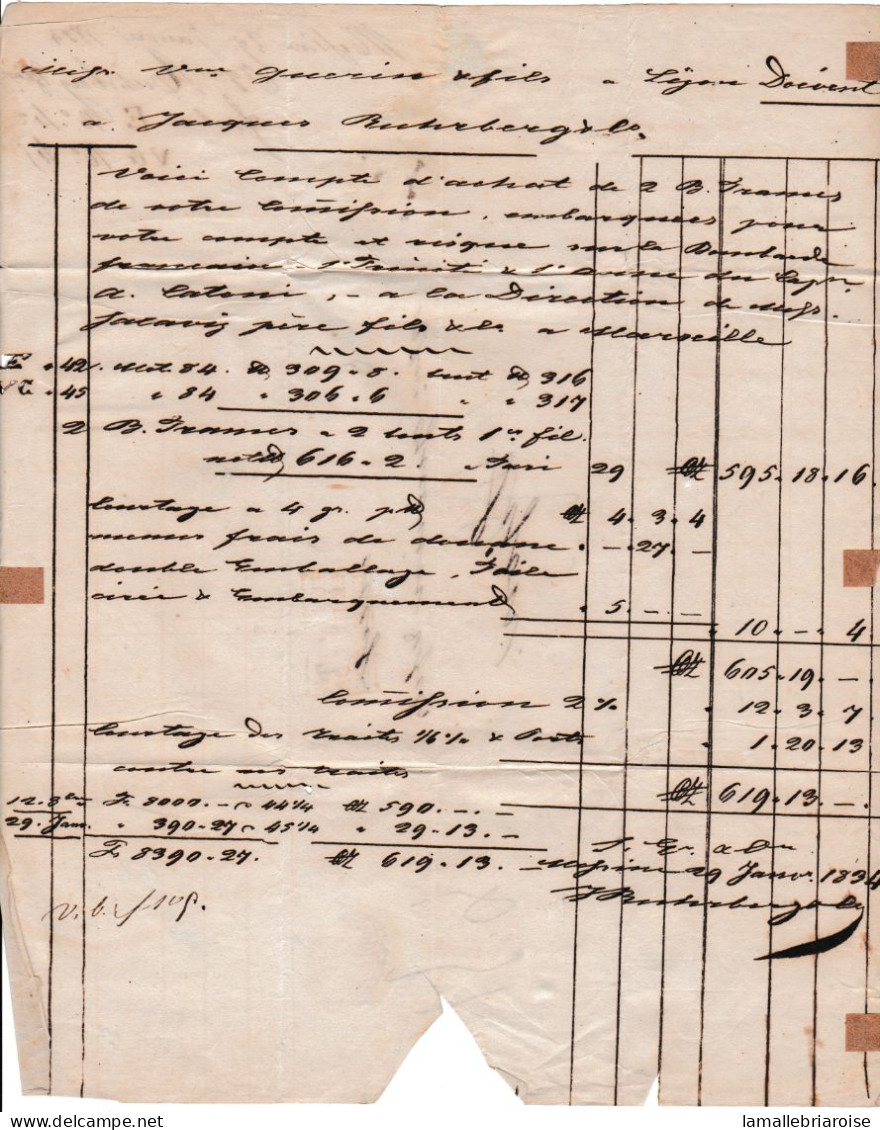 Mess. Vve Guerin & fils a Lyon Doivent
a Jacques Ruhrberg & Co.
Voici Compte d'achat de 2 B. Trames
de votre Comission, embarquées pour
votre compte et risque sur la Bombarde
francaise Ste Trinité & Ste Anne du Capne
A. Catoni, a la Direction de Mess.
père fils & Co a Marseille
42 Mot. 84 309 " 8. 316
45 " 84 " 306 " 6 " " 317
2 B. Trames a 2 bouts 1er fil.
616 " 2. a Tari 29 595 " 18 " 16.
Courtage a 4 gr. 4 " 3 " 4
menus frais de douane " — " 27 " —
double Emballage, Toile
cirée & Embarquement " 5 " — " —
" 10 " — " 4
605 " 19 " —
Comission 2 % " 12 " 3 " 7
Courtage des traites 1/6 % & Ports " 1 " 20 " 13
contre nos traites
619 " 13 " —
12. 8bre F. 8000. — a 44 1/4 590. —. —
29. Janv. " 390 " 27 a 45 1/4 " 29 " 13. —
F. 8390 " 27. 619 " 13. —
S. E. & On
Messine 29 Janvr. 1834
J Ruhrberg & Co
lamallebriaroise